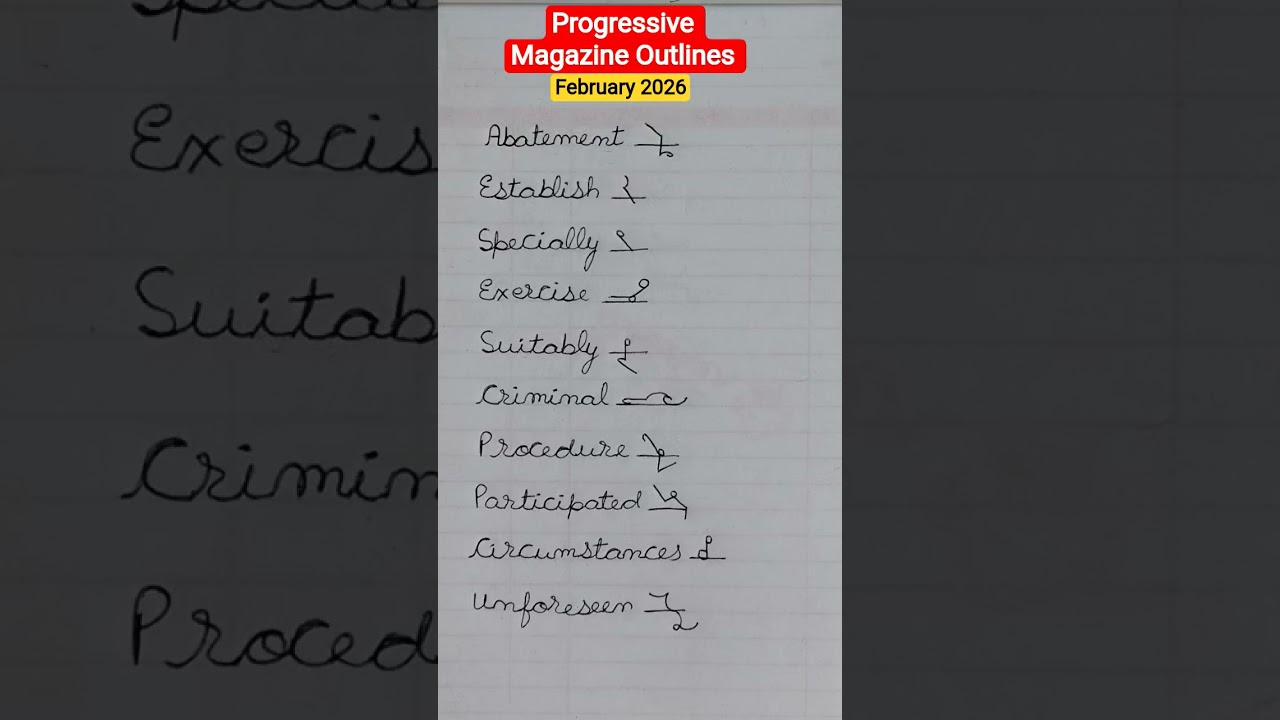 Progressive
Magazine Outlines
February 2026
Abatement
Establish
Specially
Exercise
Suitably
Criminal
Procedure
Participated
Circumstances
Unforeseen
Exercis
Suitab
Crimin
Proced